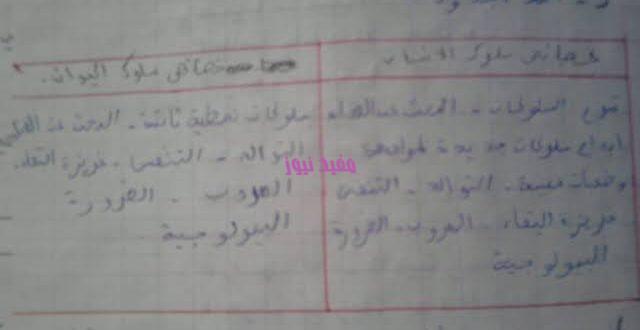 خصائص سلوك الإنسان
خصائص سلوك الحيوان.
تنوع السلوكات - البحث عن الغذاء
إبداع سلوكات جديدة لمواجهة
وضعيات معينة - التوالد - التنفس
غريزة البقاء - الهروب - الضرورة
البيولوجية
سلوكات نمطية ثابتة - البحث عن
التوالد - التنفس - غريزة البقاء.
الهروب - الضرورة
البيولوجية
مفيد نيوز